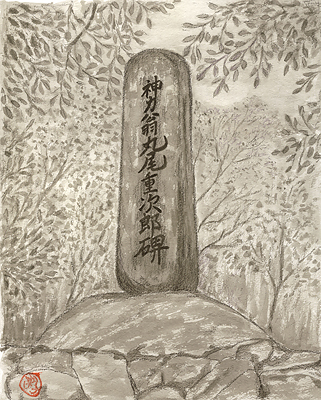 神力翁丸尾重次郎碑